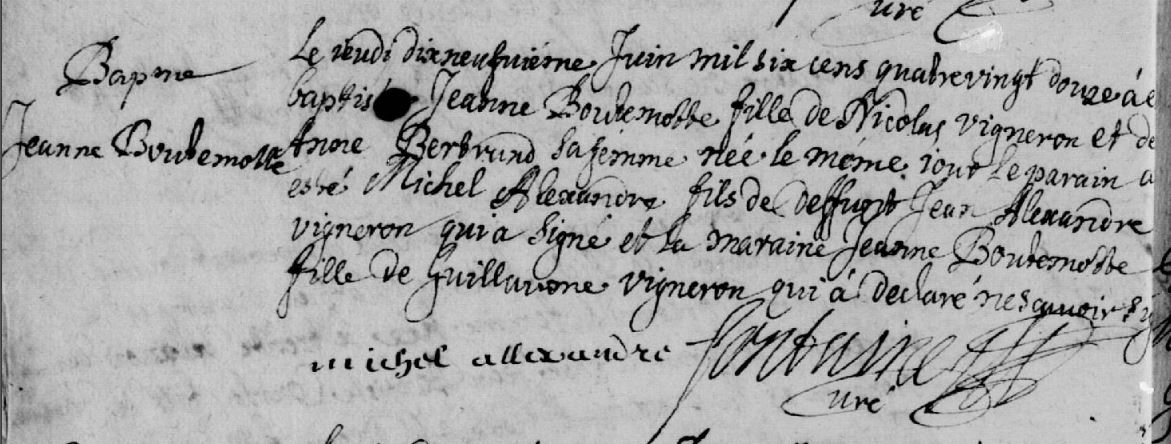 uré
Bapme
Jeanne Boutemotte
Le ieudi dixneufuiéme Juin mil six cens quatrevingt douze à e
baptis Jeanne Boutemotte fille de Nicolas vigneron et de
Anne Bertrand sa femme née le méme iour le parain a
esté Michel Alexandre fils de deffunt Jean Alexandre
vigneron qui a signé et la maraine Jeanne Boutemotte
fille de Guillaume vigneron qui à declaré ne sçauoir
michel allexandre fontaine
Curé